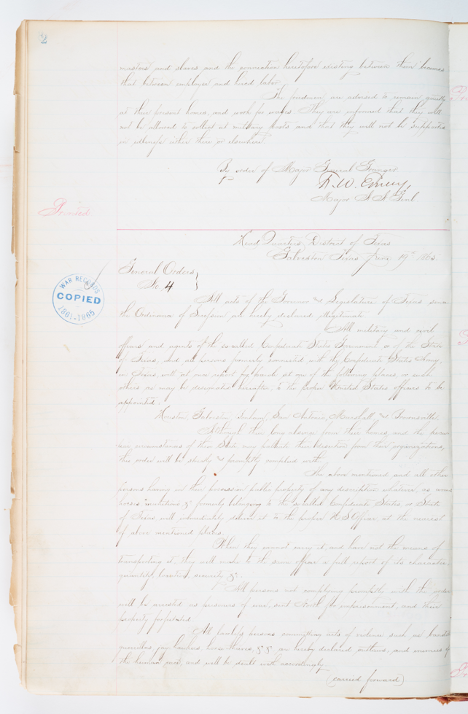 2
masters and slaves and the connection heretofore existing between them becomes
that between employer and hired labor.
The freedmen are advised to remain quietly
at their present homes, and work for wages. They are informed that they will
not be allowed to collect at military posts and that they will not be supported
in idleness either there or elsewhere.
By order of Major General Granger
F. W. Emery,
Major & A. A. Genl
Printed.
Head Quarters, District of Texas
Galveston Texas June 19th 1865.
General Orders
No 4
WAR RECORDS
COPIED
1861-1865
All acts of the Governor & Legislature of Texas since
the Ordinance of Secession are hereby declared illegitimate.
All military and civil
officers and agents of the so called Confederate States Government or of the State
of Texas, and all persons formerly connected with the Confederate States Army,
in Texas will at once report for parole at one of the following places or such
others as may be designated hereafter, to the proper United States officers to be
appointed.
Houston, Galveston, San Antonio, Marshall, & Brownsville,
this order will be strictly & promptly complied with.
The above mentioned and all other
persons having in their possession public property of any description whatever, as arms
horses munitions & formerly belonging to the so called Confederate States, or State
of Texas will immediately deliver it to the proper U S officer at the nearest
of above mentioned places.
When they cannot carry it and have not the means of
transporting it they will make to the same officer a full report of its character
quantity location, security &
All persons not complying promptly with this order
will be arrested as prisoners of war, sent North for imprisonment, and their
property forfeited.
All lawless persons committing acts of violence such as
guerrillas, jay hawkers, horse thieves, & & are hereby declared outlaws, and enemies of
the human race, and will be dealt with accordingly
(carried forward)